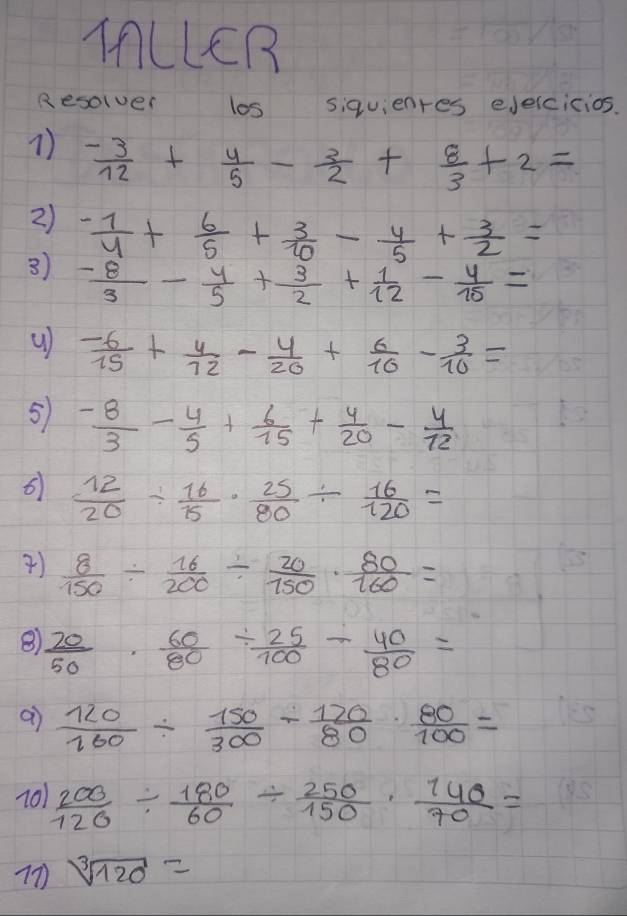 TALLER
Resolver los siquientes ejercicios.
1) -3/12 + 4/5 - 3/2 + 8/3 + 2 =
2) -1/4 + 6/5 + 3/10 - 4/5 + 3/2 =
3) -8/3 - 4/5 + 3/2 + 1/12 - 4/15 =
4) -6/15 + 4/12 - 4/20 + 6/10 - 3/10 =
5) -8/3 - 4/5 + 6/15 + 4/20 - 4/12
6) 12/20 ÷ 16/15 · 25/80 ÷ 16/120 =
7) 8/150 ÷ 16/200 ÷ 20/150 · 80/160 =
8) 20/50 · 60/80 ÷ 25/100 ÷ 40/80 =
9) 120/160 ÷ 150/300 ÷ 120/80 · 80/100 =
10) 200/120 ÷ 180/60 ÷ 250/150 · 140/70 =
11) ∛120 =